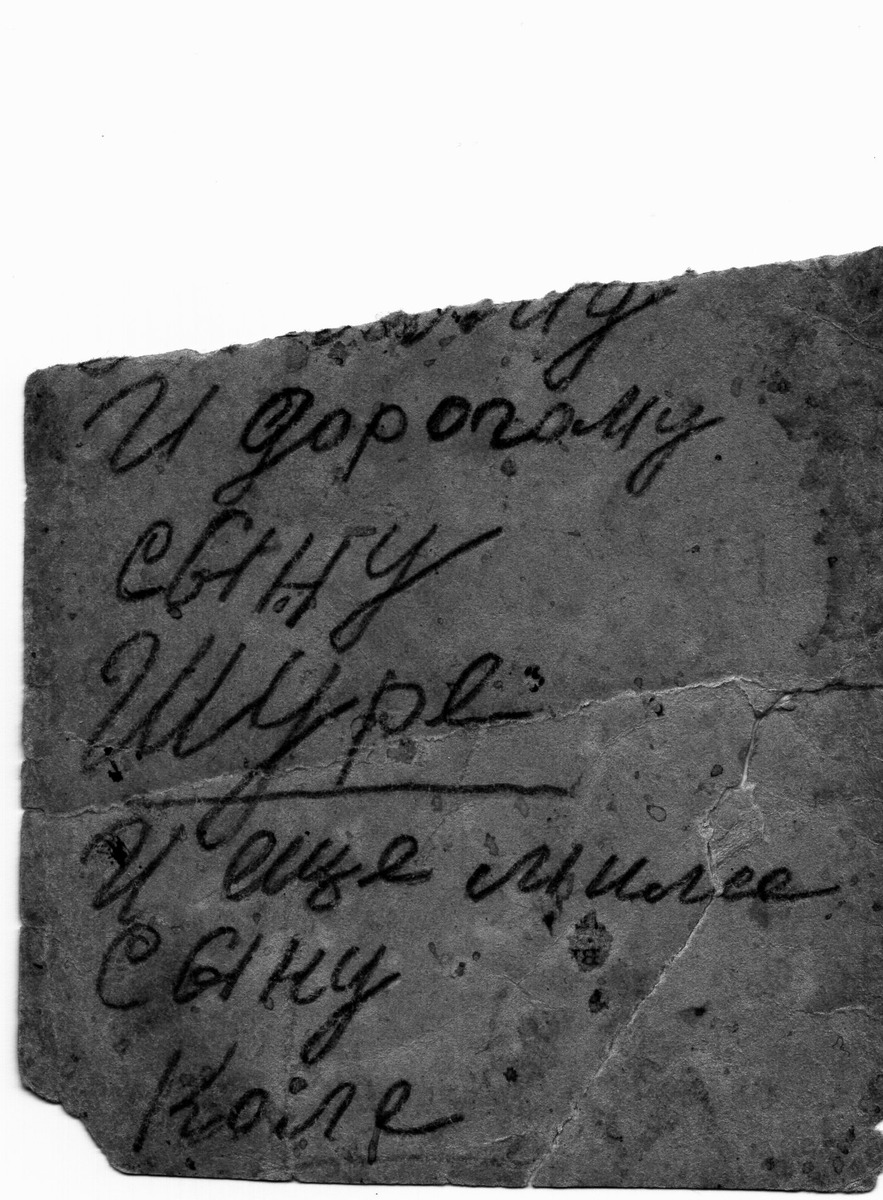 И дорогому
сыну
Шуре
И еще милее
сыну
Коле